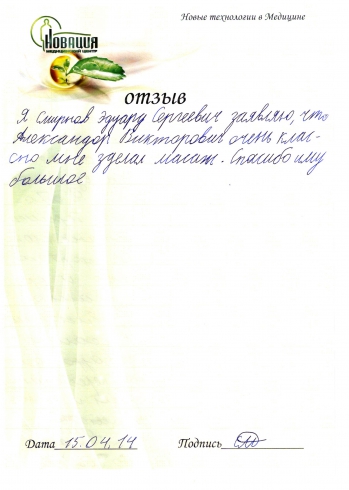 Новые технологии в Медицине
НОВАЦИЯ
МЕДИЦИНСКИЙ ЦЕНТР
ОТЗЫВ
Я Смирнов Эдуард Сергеевич заявляю, что
Александор Викторович очень клас-
сно мне зделал масаж. Спасибо ему
большое
Дата 15.04.14 Подпись